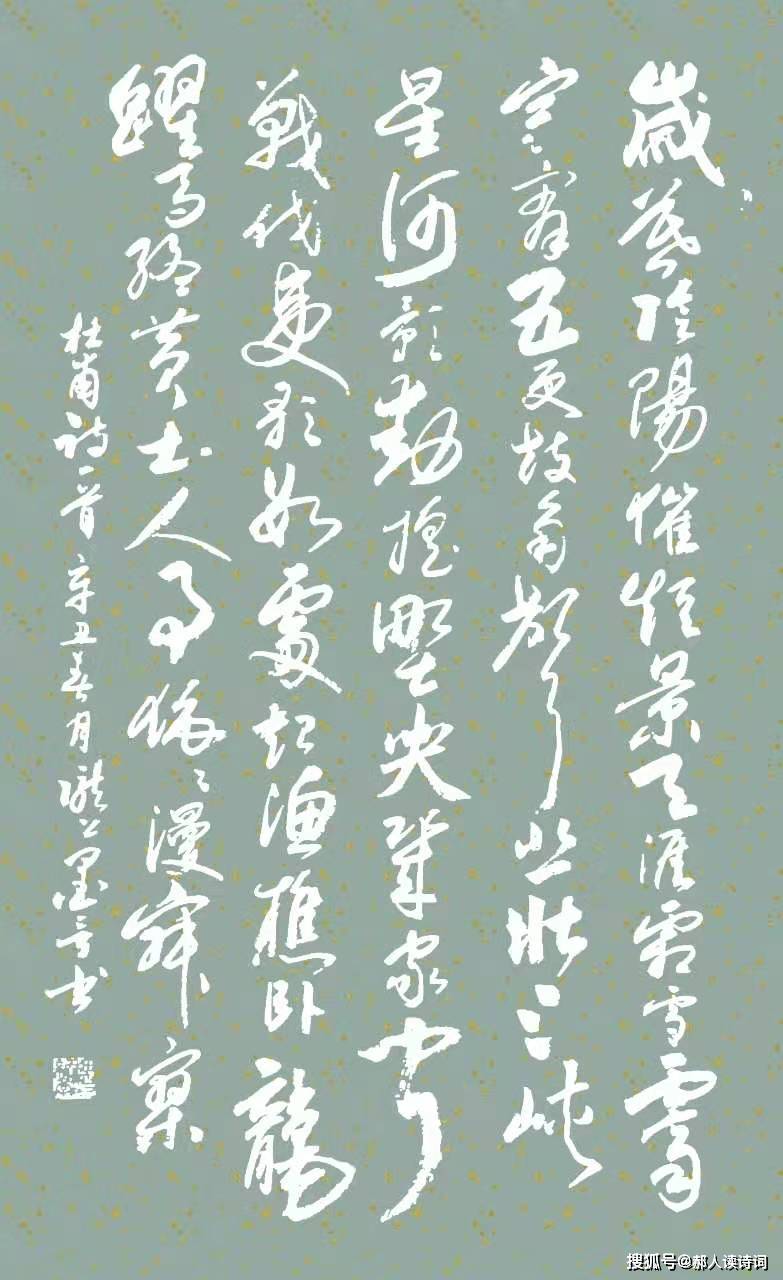 歲暮陰陽催短景天涯霜雪霽
寒宵五更鼓角聲悲壯三峽
星河影動搖野哭幾家聞
戰伐夷歌數處起漁樵臥龍
躍馬終黃土人事依依漫寂寥
杜甫詩一首辛丑春月書
搜狐号@郝人读诗词